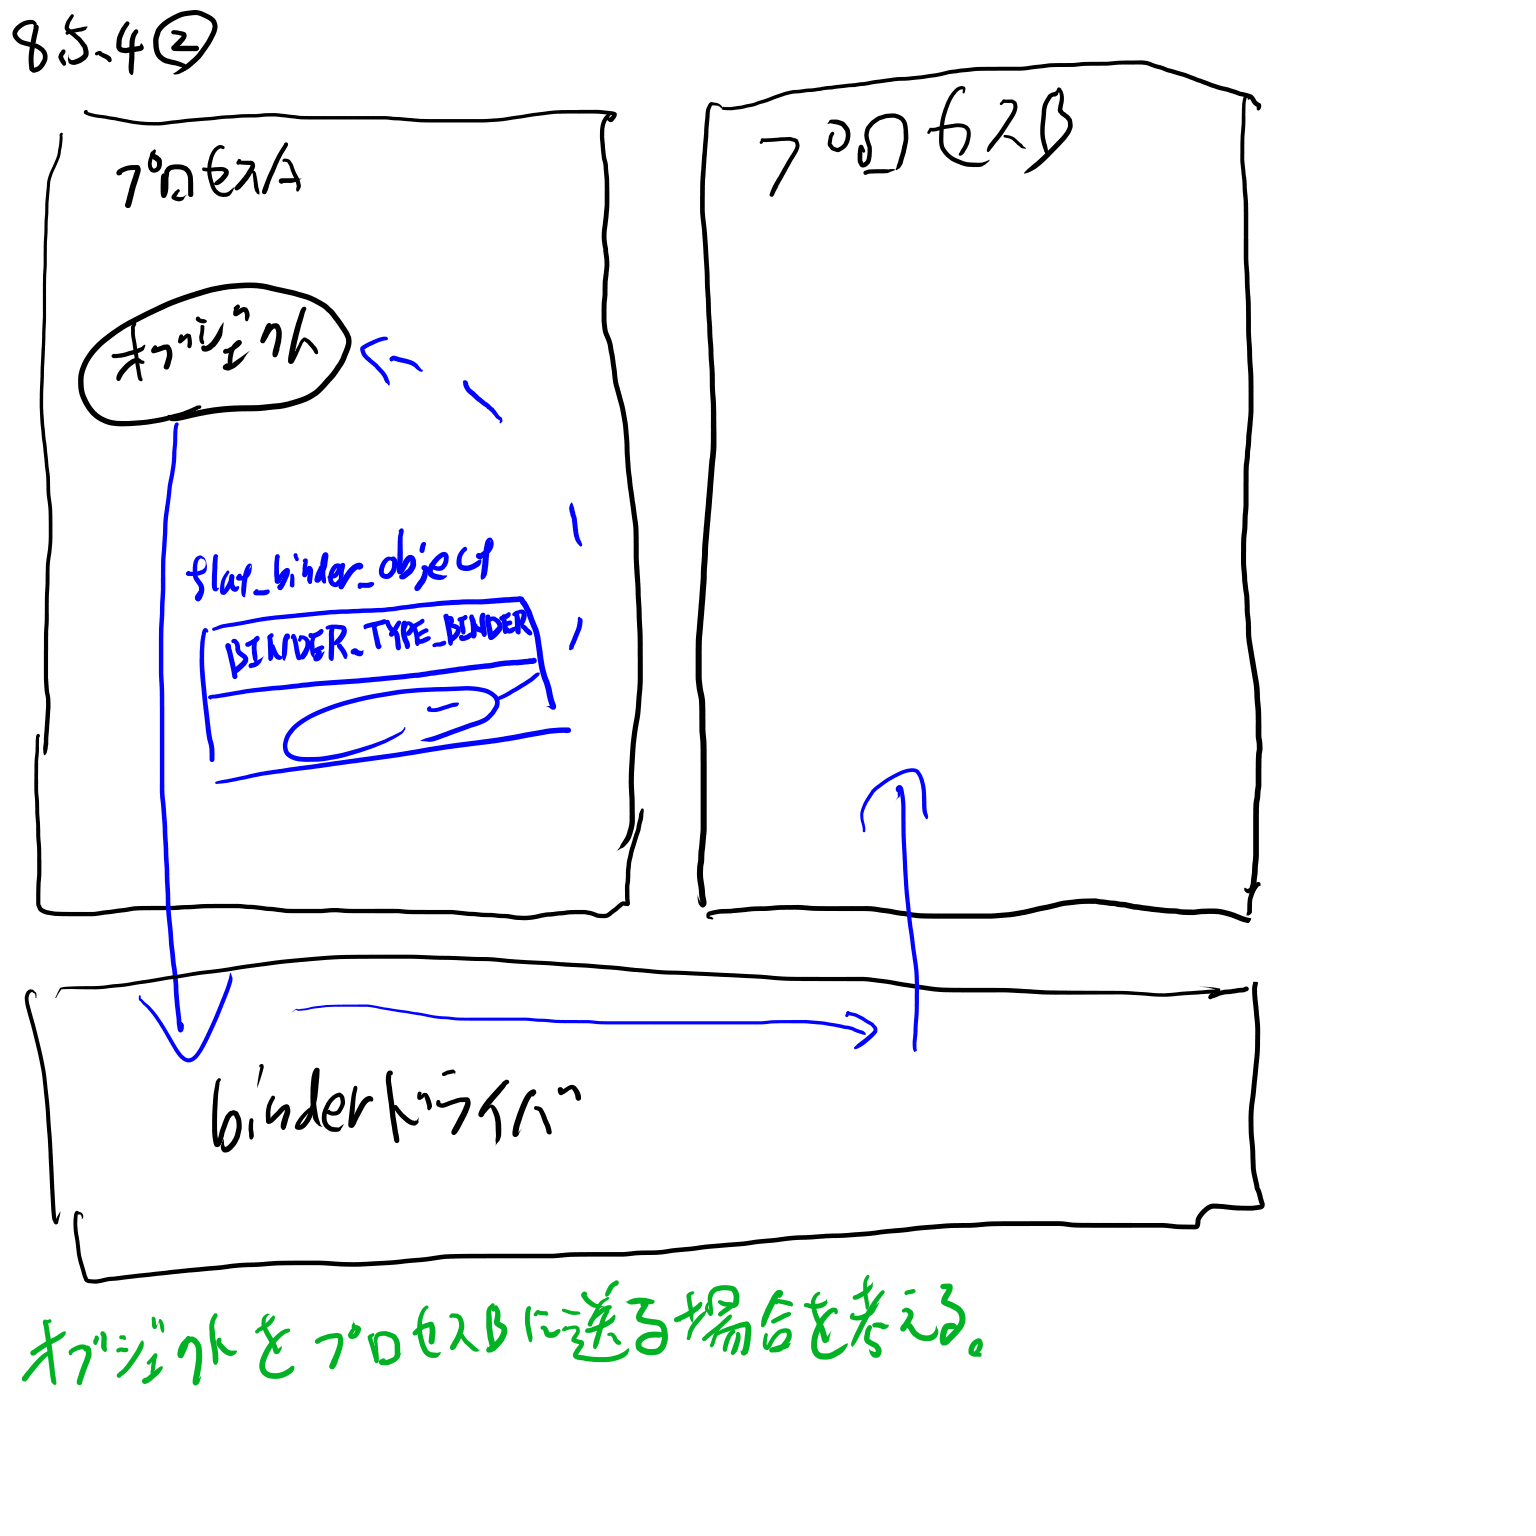 8.5.4②
プロセスA
プロセスB
オブジェクト
flat_binder_object
BINDER_TYPE_BINDER
binderドライバ
オブジェクトをプロセスBに送る場合を考える。